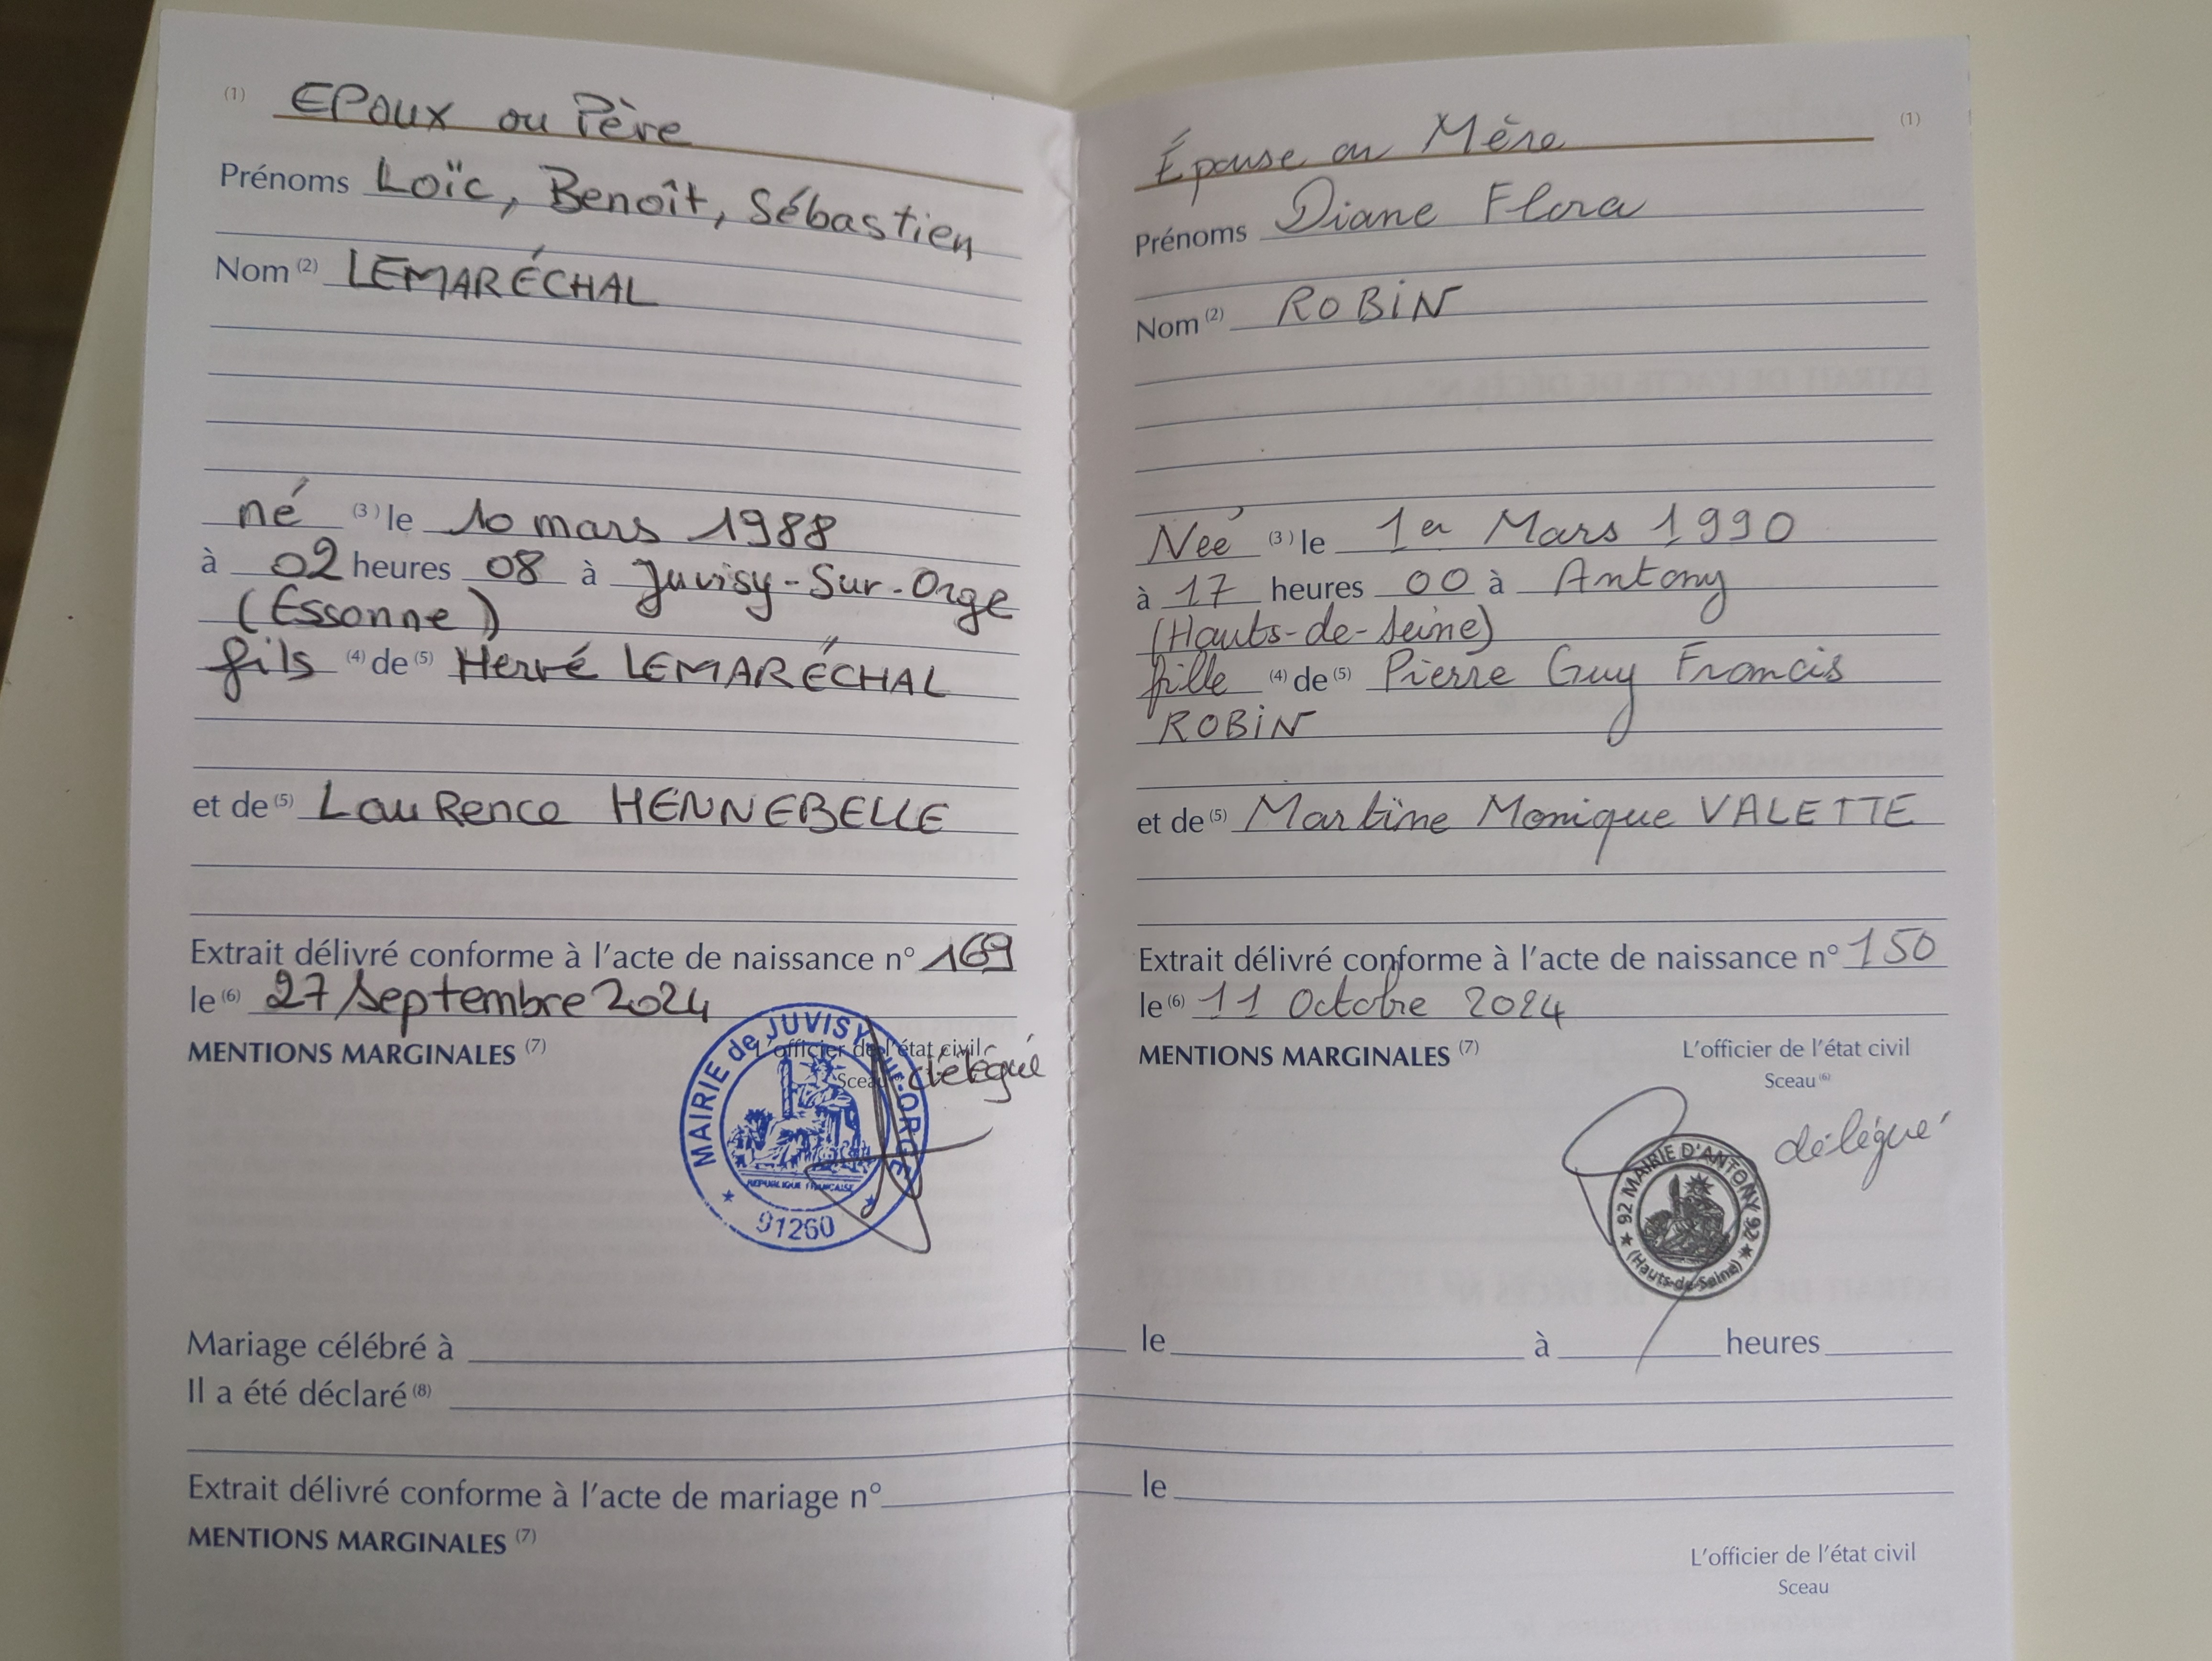 (1) EPoux ou Père
Prénoms Loïc, Benoît, Sébastien
Nom (2) LEMARÉCHAL
né (3) le 10 mars 1988
à 02 heures 08 à Juvisy-Sur-Orge
(Essonne)
fils (4) de (5) Hervé LEMARÉCHAL
et de (5) LauRence HENNEBELLE
Extrait délivré conforme à l'acte de naissance n° 169
le (6) 27 Septembre 2024
MENTIONS MARGINALES (7)
L'officier de l'état civil
Sceau
délégué
MAIRIE de JUVISY-SUR-ORGE
REPUBLIQUE FRANCAISE
91260
Épouse ou Mère (1)
Prénoms Diane Flora
Nom (2) ROBiN
Née (3) le 1er Mars 1990
à 17 heures 00 à Antony
(Hauts-de-Seine)
fille (4) de (5) Pierre Guy Francis
ROBiN
et de (5) Martine Monique VALETTE
Extrait délivré conforme à l'acte de naissance n° 150
le (6) 11 Octobre 2024
MENTIONS MARGINALES (7)
L'officier de l'état civil
Sceau (6)
délégué
92 MAIRIE D'ANTONY 92
(Hauts-de-Seine)
Mariage célébré à le à heures
Il a été déclaré (8)
Extrait délivré conforme à l'acte de mariage n° le
MENTIONS MARGINALES (7)
L'officier de l'état civil
Sceau